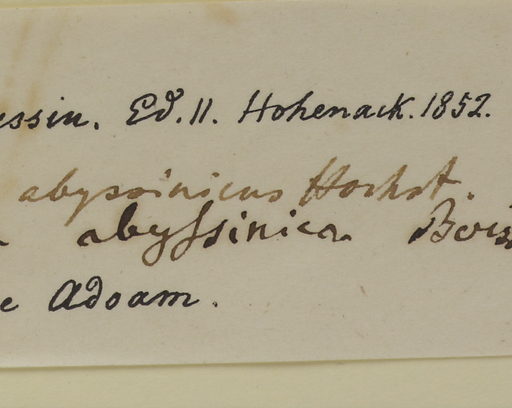 essin. Ed. II. Hohenack. 1852.
abyssinicus Hochst.
abyssinica Boiss
e Adoam.